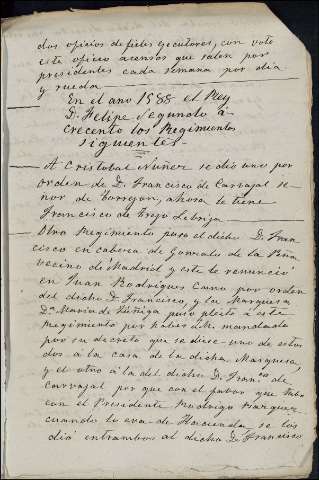 dos oficios de fieles ejecutores, con voto
este oficio accesos que salen por
presidentes cada semana por dia
y rueda
En el año 1588 el Rey
D. Felipe segundo a-
crecento los Regimientos
siguientes.
A Cristobal Nuñez se dio uno por
orden de D. Francisco de Carvajal se-
ñor de Torrejon, ahora le tiene
Francisco de Trejo Lebrija
Otro Regimiento puso el dicho D. Fran
cisco en cabeza de Gonzalo de la Peña
vecino de Madrid y este le renunció
en Juan Rodrigues Cano por orden
del dicho D. Francisco, y la Marquesa
Dª Maria de Zúñiga puso pleito á este
Regimiento por haber S.M. mandado
por su decreto que se diese uno de estos
dos a la casa de la dicha Marquesa,
y el otro á la del dicho D. Franco. de
Carvajal por que con el pabor que tubo
con el Presidente Rodrigo Vazquez
cuando lo era de Hacienda, se los
dió entrambos al dicho D. Francisco